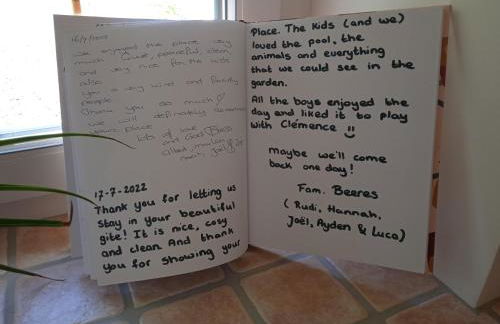 we enjoyed the place very
much. Quiet, peaceful, clean
and very nice for the kids
also.
you a very nice and friendly
people.
thank you so much
we will definitely
your place
lots of love
and God Bless
17-7-2022
Thank you for letting us
stay in your beautiful
gite! It is nice, cosy
and clean. And thank
you for showing your
Place. The kids (and we)
loved the pool, the
animals and everything
that we could see in the
garden.
All the boys enjoyed the
day and liked it to play
with Clémence
Maybe we'll come
back one day!
Fam. Beeres
(Rudi, Hannah,
Joël, Ayden & Luca)